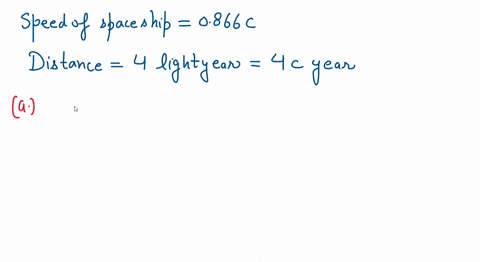 Speed of spaceship = 0.866 c
Distance = 4 lightyear = 4 c year
(a.)